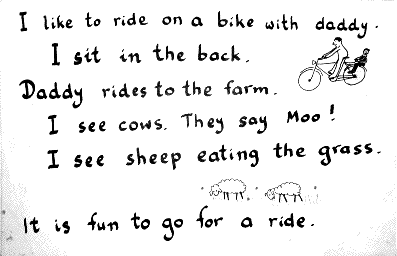 I like to ride on a bike with daddy.
I sit in the back.
Daddy rides to the farm.
I see cows. They say Moo!
I see sheep eating the grass.
It is fun to go for a ride.